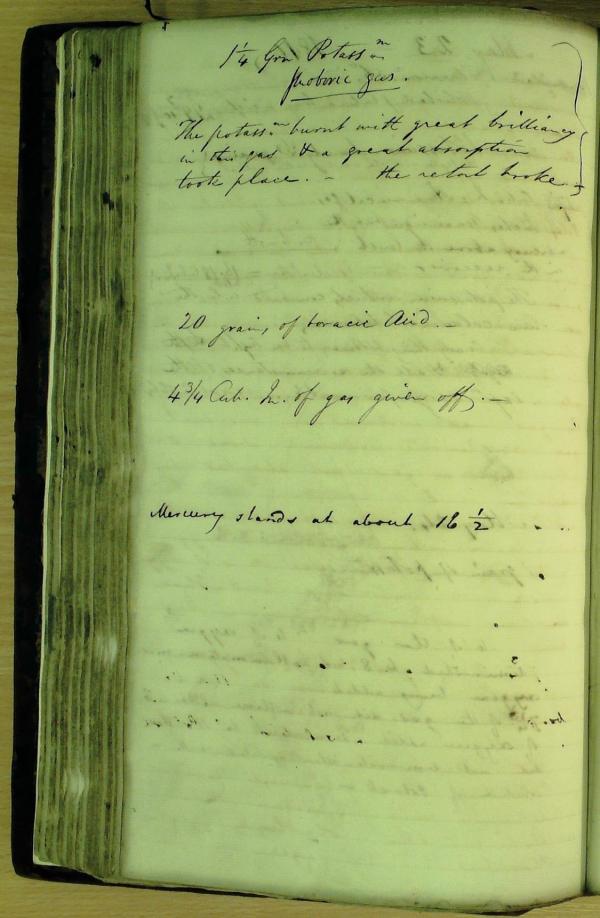 1 1/4 Grn Potassm
fluoboric gas.
The potassm burnt with great brilliancy
in this gas & a great absorption
took place. – the retort broke –
20 grains of boracic Acid. –
4 3/4 Cub. In. of gas given off. –
Mercury stands at about 16 1/2